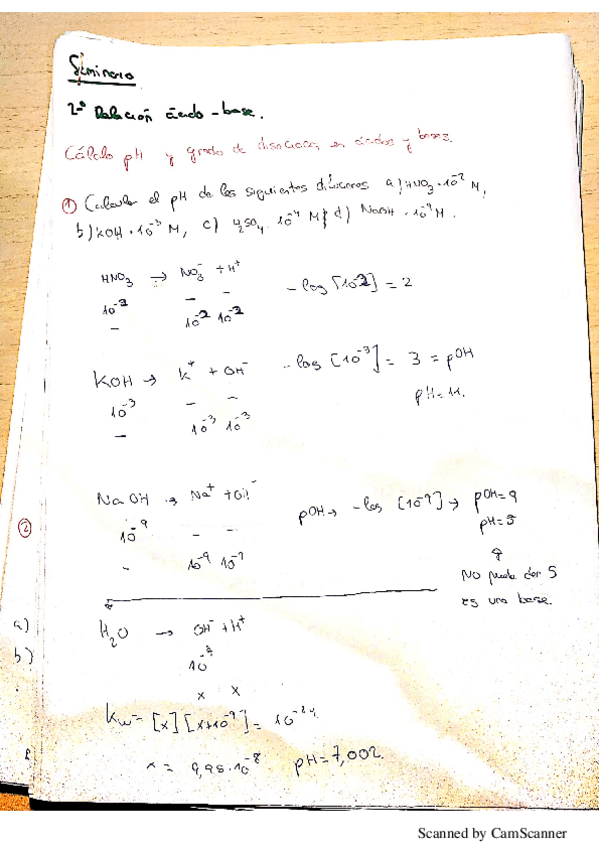 Seminario
2º Relación ácido-base.
Cálculo pH y grado de disociación en ácidos y bases.
① Calcular el pH de las siguientes a) HNO₃ · 10⁻² M,
b) KOH · 10⁻³ M, c) H₂SO₄ · 10⁻⁴ M y d) NaOH · 10⁻⁹ M.
HNO₃ → NO₃⁻ + H⁺
10⁻² − − -log [10⁻²] = 2
− 10⁻² 10⁻²
KOH → K⁺ + OH⁻ -log [10⁻³] = 3 = pOH
10⁻³ − − pH = 11.
− 10⁻³ 10⁻³
NaOH → Na⁺ + OH⁻ pOH → -log [10⁻⁹] → pOH = 9
② 10⁻⁹ − − pH = 5
− 10⁻⁹ 10⁻⁹
No puede dar 5
es una base.
a) H₂O → OH⁻ + H⁺
b)
x x
Kw = [x] [x+10⁻⁹] = 10⁻¹⁴
x = 9,95·10⁻⁸ pH = 7,002.
Scanned by CamScanner